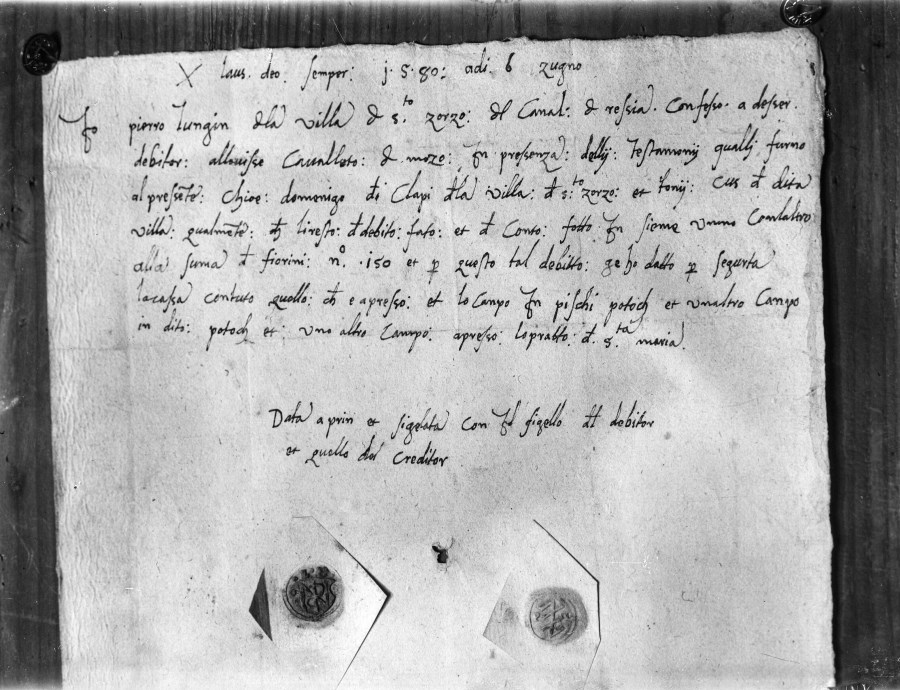 X laus. deo. semper: j.5.80: adi. 6 zugno
Jo pierro lungin dla villa d s.to zorzo: del Canal: d ressia. Confesso. a desser.
debitor: alluisse Cavalloto: d mozo: Jn pressenza: dellij: Testamonij quallj furno
al presēte: Chioe: domenigo di Clapi dla villa: d s.to zorzo: et tonij: Cus d dita
villa: qualmēte: ch liresto: d debito: fato: et d Conto: fotto Jn sieme vnuno Conlaltro
alla suma d fiorini: n.o .150 et p questo tal debitto: ge ho datto p segurta
lacassa contuto quello: ch e apresso: et lo Canpo Jn pischi potoch et vnaltro Campo
in dito: potoch et: vno altro Campo: apresso: lopratto: d. s.ta maria.
Data aprin et sigelata con Jl sigello dl debitor
et quello del Creditor